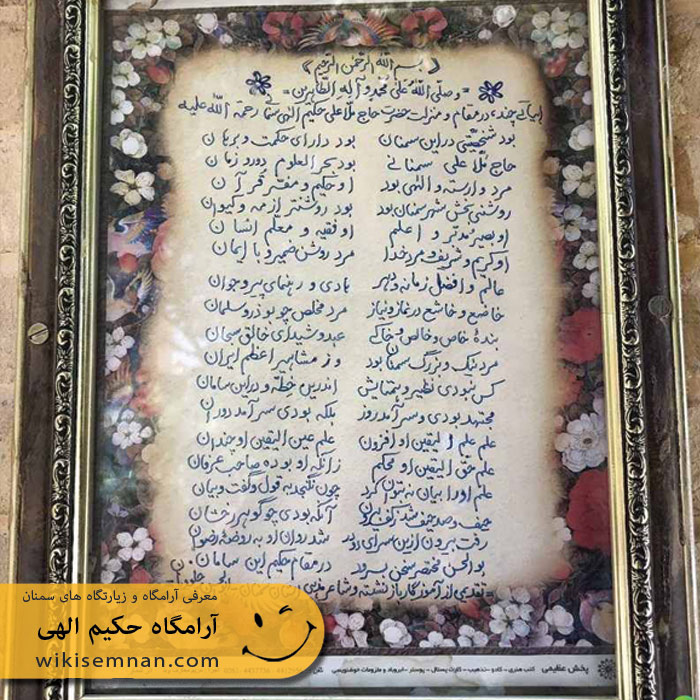 بسم الله الرحمن الرحیم
وصلّی الله علی محمد و آله الطاهرین
ابیاتی چند در مقام و منزلت حضرت حاج ملا علی حکیم الهی سمنانی رحمه الله علیه
بود شخصیتی در این سمنان بود دارای حکمت و برهان
حاج ملا علی سمنانی بود بحر العلوم دورو زمان
مرد وارسته و الهی بود او حکیم و مفسر قرآن
روشنی بخش شهر سمنان بود بود روشنتر از مه و کیوان
او بصیر مدبر و اعلم او فقیه و معلم انسان
او کریم و شریف و مرد خدا مرد روشن ضمیر و با ایمان
عالم و افضل زمانه و دهر هادی و رهنمای پیر و جوان
خاضع و خاشع در نماز و نیاز مرد مخلص چو بوذر و سلمان
بنده خاص و خالص و خاکی عبد و شیدای خالق سبحان
مرد نیک و بزرگ سمنان بود وز مشاهیر اعظم ایران
کس نبودی نظیر و همتایش اندرین خطه و در این سامان
مجتهد بودی و سرآمد روز بلکه بودی سرآمد دوران
علم علم الیقین او افزون علم عین الیقین او چندان
علم حق الیقین او محکم زانکه او بوده صاحب عرفان
علم او را بیان نتوان کرد چون نگنجد به قول و گفت و بیان
حیف و صد حیف شد ز کف بیرون آنکه بودی چو گوهر رخشان
رفت بیرون از این سرای دو در شد روان او به روضه رضوان
بوالحسن مختصر سخنی برد در مقام حکیم این سامان
تقدیمی از آموزگار بازنشسته و شاعر
معرفی آرامگاه و زیارتگاه های سمنان
آرامگاه حکیم الهی
wikisemnan.com
پخش عظیمی